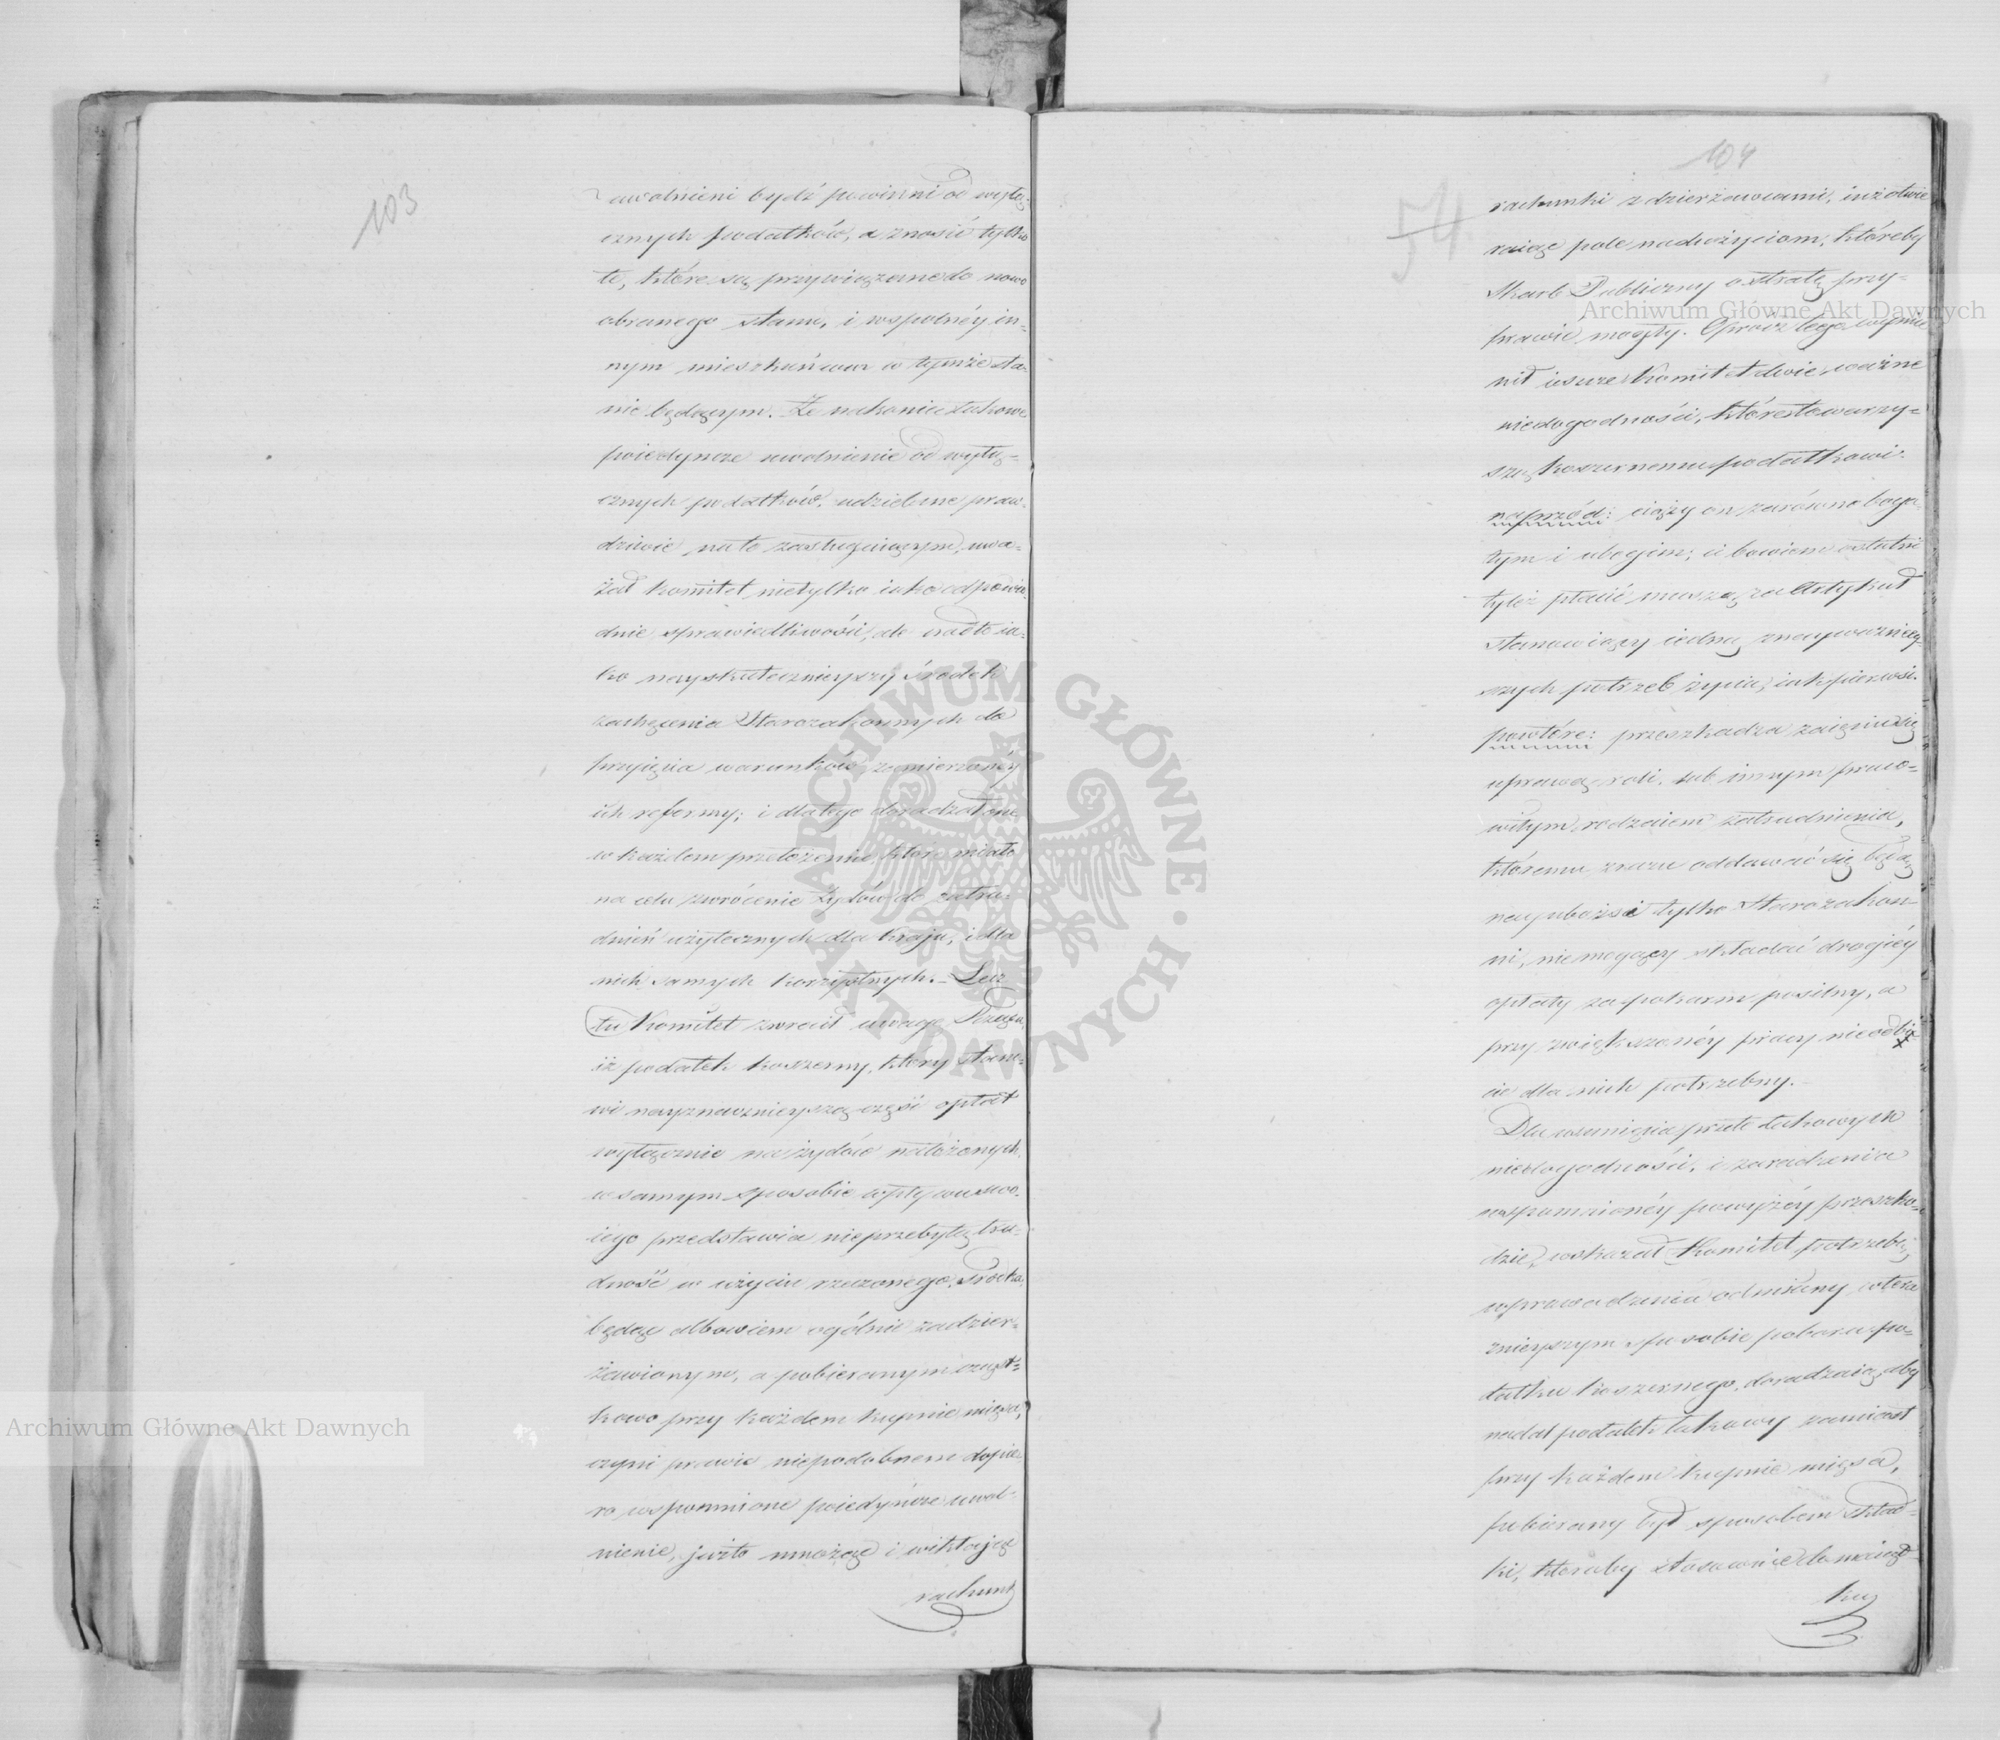 103
uwolnieni bydź powinni od wyłą-
cznych podatków, a znosić tylko
te, które są przywiązane do nowo
obranego stanu, i wspolnéy in-
nym mieszkańcom w tymże sta-
nie będącym. Że nakoniec takowe
poiedyncze uwolnienie od wyłą-
cznych podatków, udzielone praw-
dziwie na to zasługuiącym, uwa-
żał Komitet nietylko iako odpowie-
dnie sprawiedliwości, ale nadto ia-
ko nayskutecznieyszy środek
zachęcenia Starozakonnych do
przyięcia warunków zamierzonéy
ich reformy; i dlatego doradzał one
w każdem przełożeniu, które miało
na celu zwrócenie Żydów do zatru-
dnień użytecznych dla Kraju, i dla
nich samych korzystnych. – Lecz
tu Komitet zwracał uwagę Rządu,
iż podatek koszerny, który stano-
wi nayznacznieyszą część opłat
wyłącznie na żydów nałożonych,
w samym sposobie wpływu swo-
iego przedstawia nieprzebytą tru-
dność w użyciu rzeczonego środka,
będąc albowiem ogólnie zadzier-
żawionym, a pobieranym cząst-
kowo przy każdem kupnie mięsa,
czyni prawie niepodobnem dopie-
ro wspomnione poiedyńcze uwol-
nienie, jużto mnożąc i wikłając
rachunki
104
54
rachunki z dzierżawcami, iużotwie
raiąc pole nadużyciom, któreby
Skarb Publiczny o stratę przy-
prawić mogły. Oprócz tego wymie
nił ieszcze Komitet dwie ważne
niedogodności, które towarzy-
szą koszernemu podatkowi.
naprzód: ciąży on zarówno boga-
tym i ubogim; ci bowiem ostatni
tyleż płacić muszą za Artykuł
stanowiący iedną z nayważniey-
szych potrzeb życia, iak pierwsi.
powtóre: przeszkadza zaięciu się
uprawą roli, lub innym praco-
witym rodzaiem zatrudnienia,
któremu zrazu oddawać się będą
nayubożsi tylko Starozakon-
ni, niemogący składać drogiéy
opłaty za pokarm posilny, a
przy zwiększonéy pracy nieodbi-
cie dla nich potrzebny. –
Dla usunięcia przeto takowych
niedogodności, i zaradzenia
wspomnionéy powyżéy przeszko-
dzie, wskazał Komitet potrzebę
wprowadzenia odmiany w tera
znieyszym sposobie poboru po-
datku koszernego, doradzaiąc aby
nadal podatek takowy zamiast
przy każdem kupnie mięsa,
pobierany był sposobem skład-
ki, któraby stosownie do maiąt-
ku
Archiwum Główne Akt Dawnych
Archiwum Główne Akt Dawnych
ARCHIWUM GŁÓWNE · AKT DAWNYCH ·